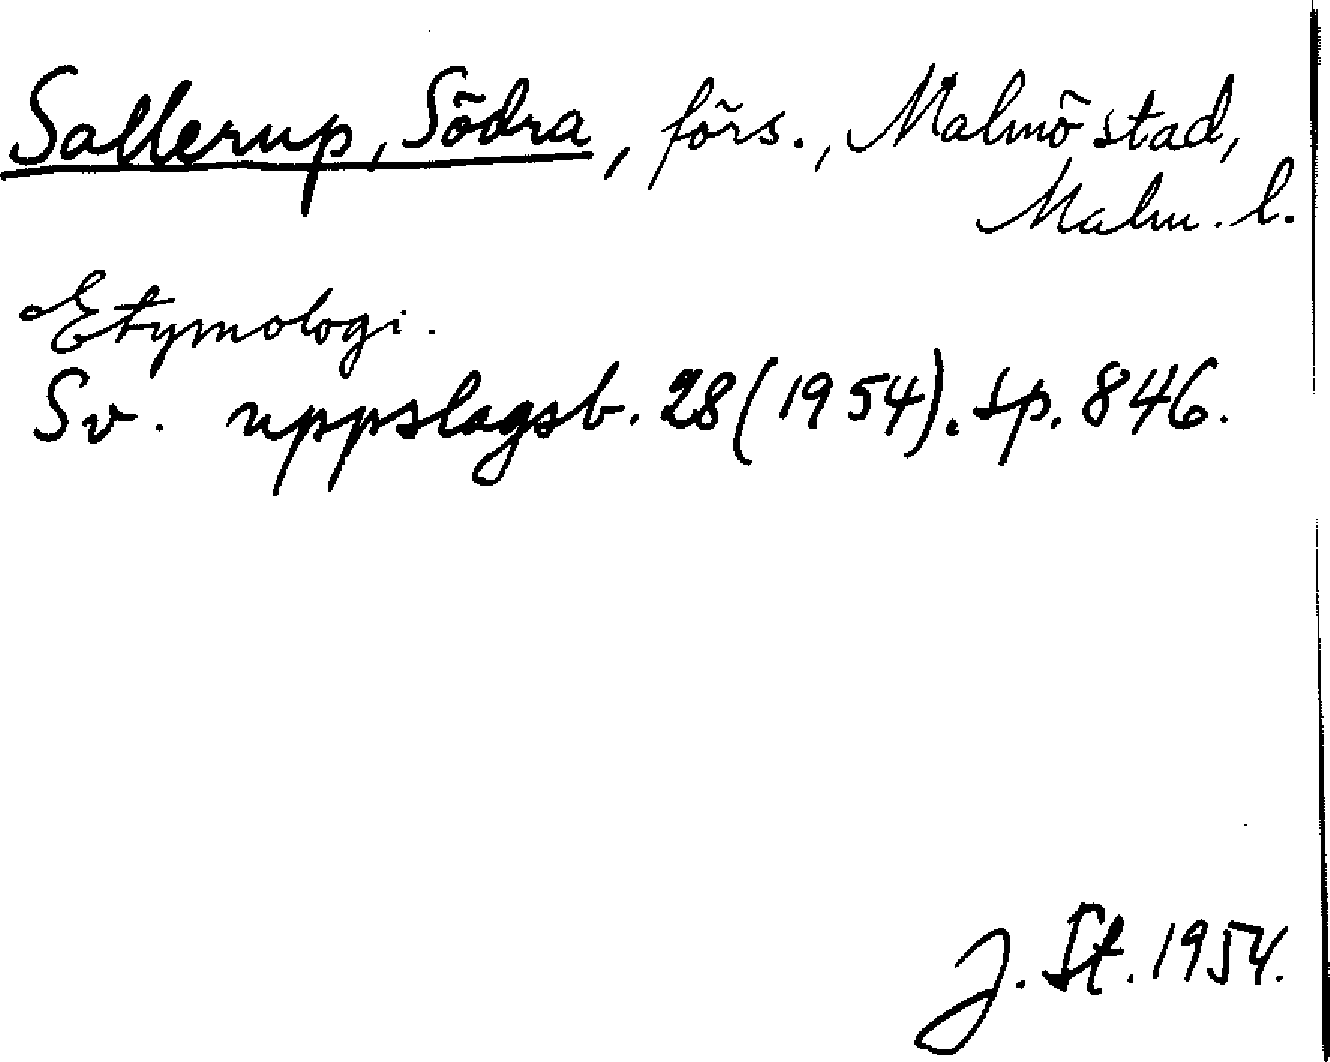 Sallerup, Södra, förs., Malmö stad,
Malm. l.
Etymologi.
Sv. uppslagsb. 28 (1954). sp. 846.
J. St. 1954.